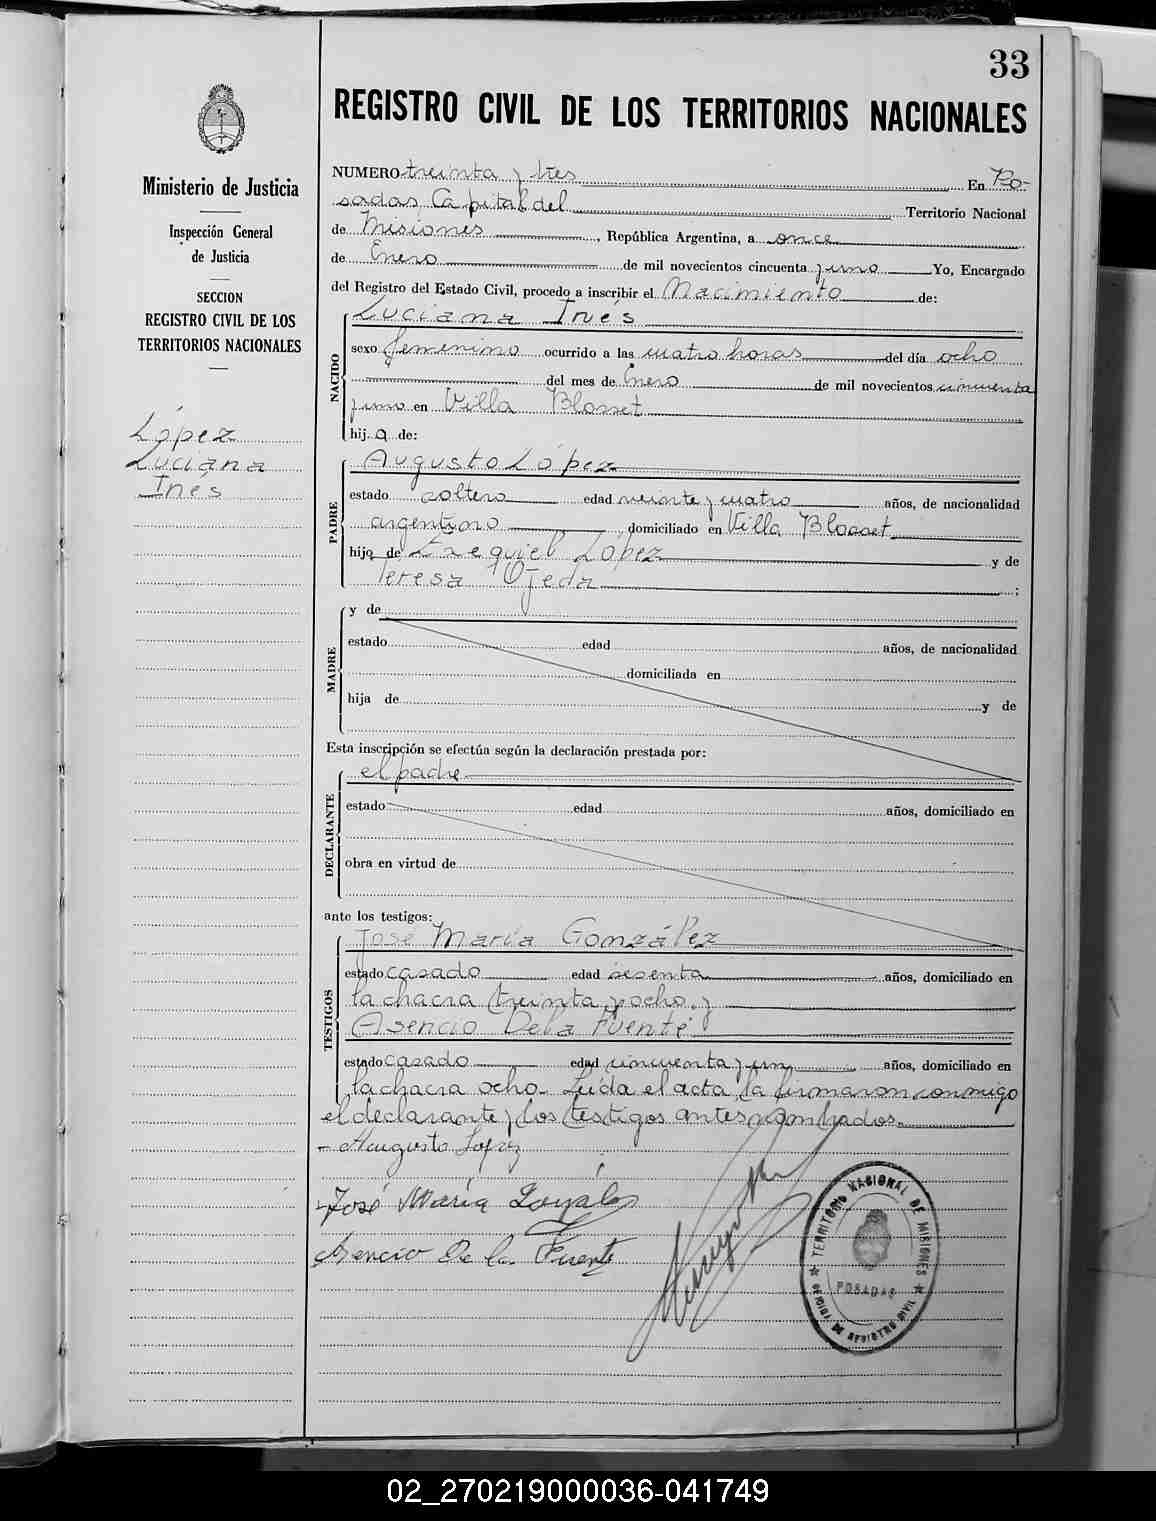 33
REGISTRO CIVIL DE LOS TERRITORIOS NACIONALES
Ministerio de Justicia
Inspección General
de Justicia
SECCION
REGISTRO CIVIL DE LOS
TERRITORIOS NACIONALES
López
Luciana
Inés
NUMERO treinta y tres En Po-
sadas, Capital del Territorio Nacional
de Misiones, República Argentina, a once
de Enero de mil novecientos cincuenta y uno Yo, Encargado
del Registro del Estado Civil, procedo a inscribir el Nacimiento de:
NACIDO
Luciana Inés
sexo femenino ocurrido a las cuatro horas del día ocho
del mes de Enero de mil novecientos cincuenta
y uno en Villa Blosset
hija de:
PADRE
Augusto López
estado soltero edad veinte y cuatro años, de nacionalidad
argentino, domiciliado en Villa Blosset
hijo de Ezequiel López y de
Teresa Ojeda;
MADRE
y de
estado edad años, de nacionalidad
domiciliada en
hija de y de
Esta inscripción se efectúa según la declaración prestada por:
DECLARANTE
el padre
estado edad años, domiciliado en
obra en virtud de
ante los testigos:
TESTIGOS
José María González
estado casado edad sesenta años, domiciliado en
la chacra treinta y ocho, y
Asencio De la Fuente
estado casado edad cincuenta y un años, domiciliado en
la chacra ocho. Leída el acta, la firmaron conmigo
el declarante y los testigos antes nombrados.
Augusto Lopez
José María González
Asencio De la Fuente
TERRITORIO NACIONAL DE MISIONES
POSADAS
OFICINA DE REGISTRO CIVIL
02_270219000036-041749